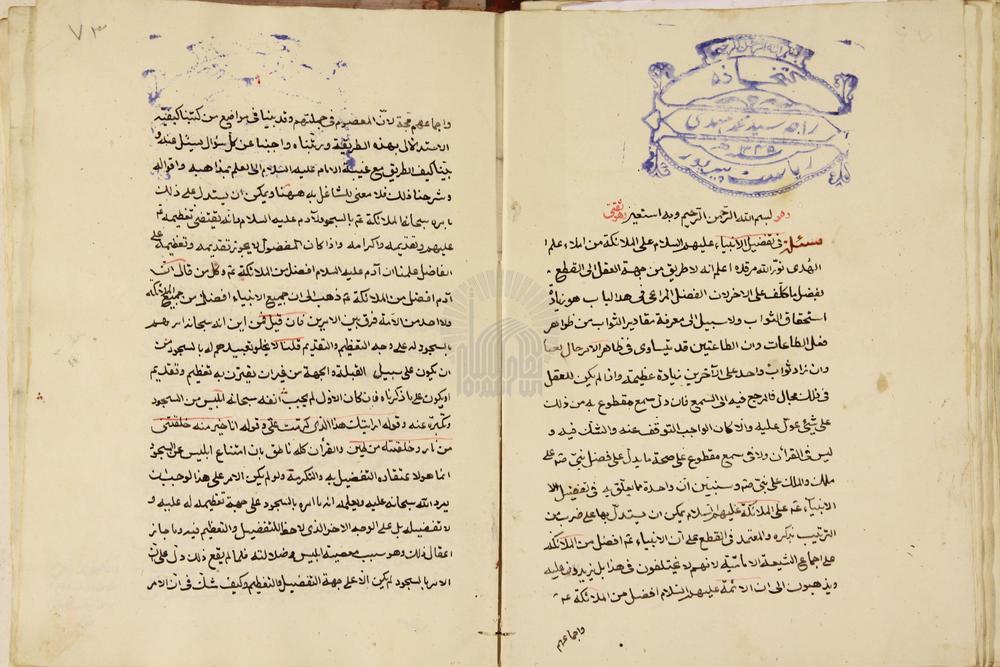 بسم الله الرحمن الرحيم
كتبخانه
راجه سيد محمد مهدي
سنه ١٣٢٥ هـ
رياست پيرپور
وهو بسم الله الرحمن الرحيم وبه استعين وهو ثقتي
مسئلة في تفضيل الأنبياء عليهم السلام على الملائكة من املاء علم
الهدى نور الله مرقده اعلم انه لا طريق من جهة العقل الى القطع
بفضل مكلف على الاخر لان الفضل المراعى في هذا الباب هو زيادة
استحقاق الثواب ولا سبيل الى معرفة مقادير الثواب من ظواهر
فعل الطاعات لان الطاعتين قد تتساوى في ظاهر الامر حالهما
وان زاد ثواب واحدة على الاخرى زيادة عظيمة واذا لم يكن للعقل
في ذلك مجال فالمرجع فيه الى السمع فان دل سمع مقطوع به من ذلك
على شيء عول عليه والا كان الواجب التوقف عنه والشك فيه و
ليس في القرآن ولا في سمع مقطوع على صحته ما يدل على فضل نبي على
ملك ولا ملك على نبي وسنبين ان آية واحدة مما يتعلق به في تفضيل
الانبياء عم على الملائكة عليهم السلام يمكن ان يستدل بها على ضرب من
الترتيب نذكره والمعتمد في القطع على ان الانبياء عم افضل من الملائكة
على اجماع الشيعة الامامية لانهم لا يختلفون في هذا بل يزيدون عليه
ويذهبون الى ان الائمة عليهم السلام افضل من الملائكة عم
واجماعهم
٧٣
واجماعهم حجة لان المعصوم في جملتهم وقد بينا في مواضع من كتبنا كيفية
الاستدلال بهذه الطريقة ورتبناه واجبنا عن كل سؤال يسئل عنه و
بينا كيف الطريق مع غيبة الامام عليه السلام الى العلم بمذاهبه واقواله
وشرحنا ذلك فلا معنى للتشاغل به ههنا ويمكن ان يستدل على ذلك
بامره سبحانه الملائكة عم بالسجود لآدم عليه السلام وانه يقتضي تعظيمه
عليهم وتقديمه واكرامه واذا كان المفضول لا يجوز تقديمه وتعظيمه على
الفاضل علمنا ان آدم عليه السلام افضل من الملائكة عم وكل من قال ان
آدم افضل من الملائكة عم ذهب الى ان جميع الانبياء افضل من جميع الملائكة
ولا احد من الامة فرق بين الامرين فان قيل فمن اين انه سبحانه امرهم
بالسجود له على وجه التعظيم والتقديم قلنا لا يخلو تعبيدهم له بالسجود من
ان يكون على سبيل القبلة والجهة من غير ان يقترن به تعظيم وتقديم
او يكون على ما ذكرناه فان كان الاول لم يجب انفة سبحانه ابليس من السجود
وتكبره عنه وقوله ارايتك هذا الذي كرمت علي وقوله انا خير منه خلقتني
من نار وخلقته من طين والقرآن كله ناطق بان امتناع ابليس من السجود
انما هو لاعتقاده التفضيل به والتكرمة ولو لم يكن الامر على هذا لوجب ان
يرد الله سبحانه عليه ويعلمه انه ما امره بالسجود على جهة تعظيمه له عليه و
لا تفضيله بل على الوجه الاخر الذي لا حظ للتفضيل والتعظيم فيه وما جاز
اغفال ذلك وهو سبب معصية ابليس وضلالته فلما لم يقع ذلك دل على ان
الامر بالسجود لم يكن الا على جهة التفضيل والتعظيم وكيف شك في ان الامر